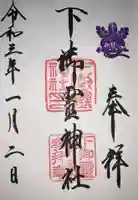 奉拝
下御霊神社
令和三年一月二日